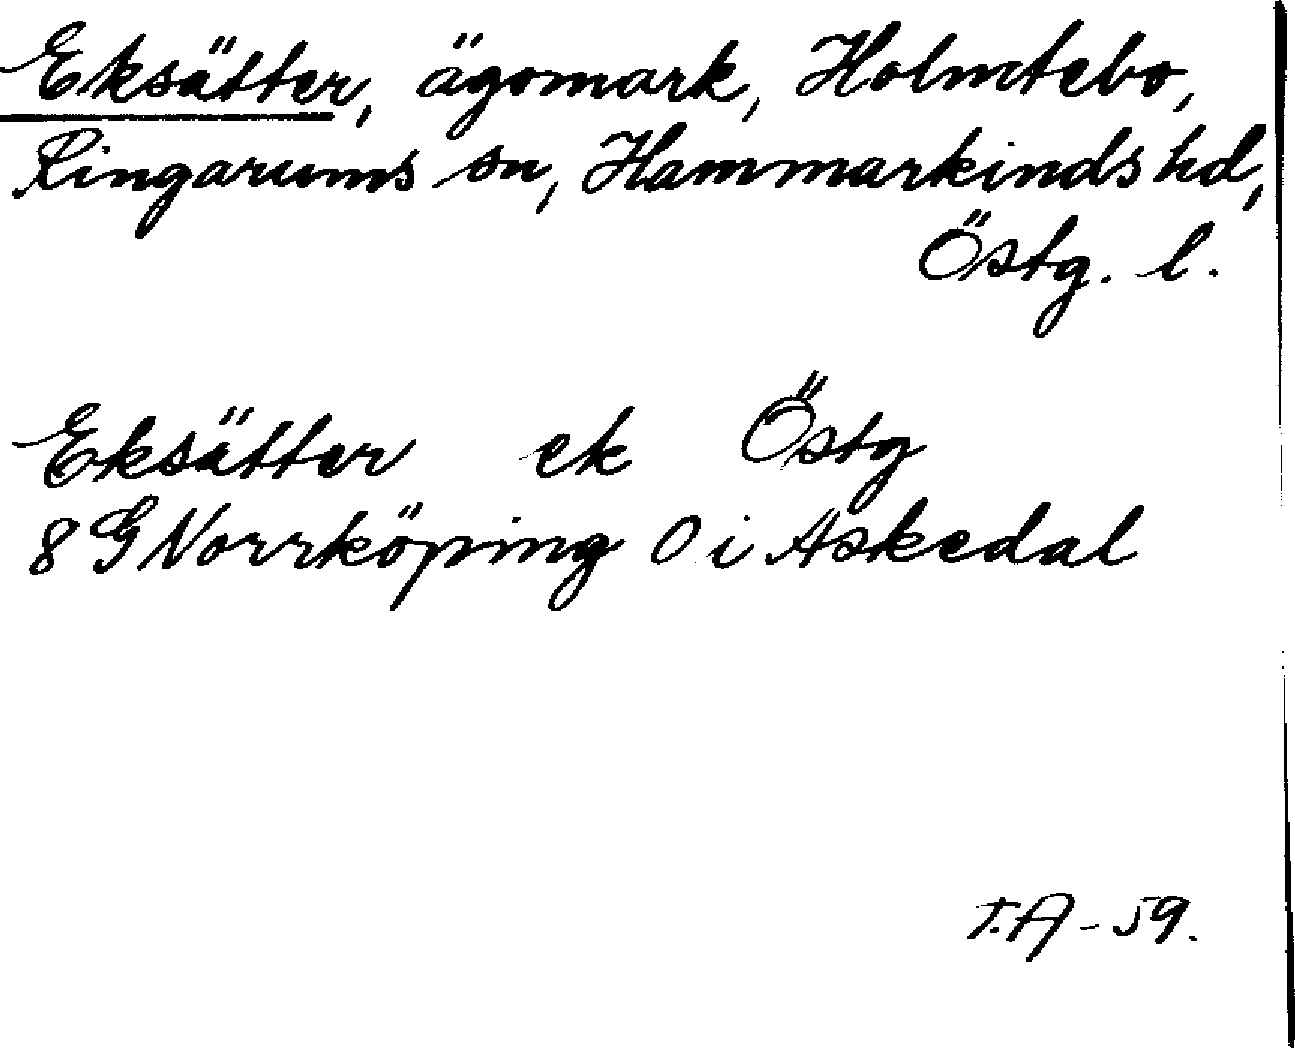 Eksätter, ägomark, Holmtebo,
Ringarums sn, Hammarkinds hd,
Östg. l.
Eksätter ek Östg
8 G Norrköping O i Askedal
T.A - 59.